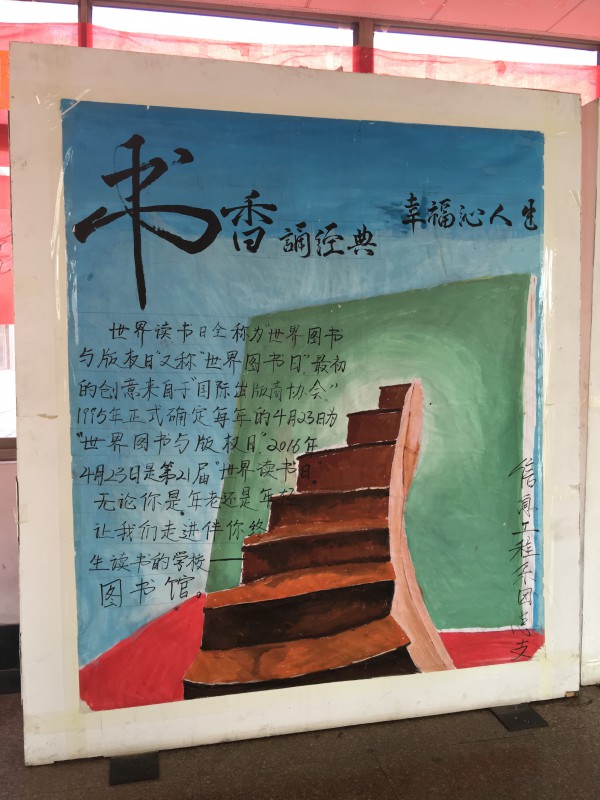 书香诵经典
幸福沁人生
世界读书日全称为"世界图书
与版权日"又称"世界图书日"最初
的创意来自于"国际出版商协会"
1995年正式确定每年的4月23日为
"世界图书与版权日"2016年
4月23日是第21届"世界读书日"
无论你是年老还是年
让我们走进伴你终
生读书的学校——
图书馆。
工程系团总支